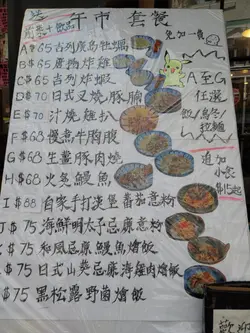 午市套餐
免加一費
A $65 吉列廣島牡蠣
B $65 唐揚炸雞
C $65 吉列炸蝦
D $70 日式叉燒豚腩
E $70 汁燒雞扒
F $68 慢煮牛胸腹
G $68 生薑豚肉燒
H $68 火炙鰻魚
I $88 自家手打漢堡蕃茄意粉
J $75 海鮮明太子忌廉意粉
$75 和風忌廉鰻魚燴飯
$75 日式山葵忌廉海鹽肉燴飯
$75 黑松露野菌燴飯
A至G
任選
飯/烏冬/
拉麵
追加
小食